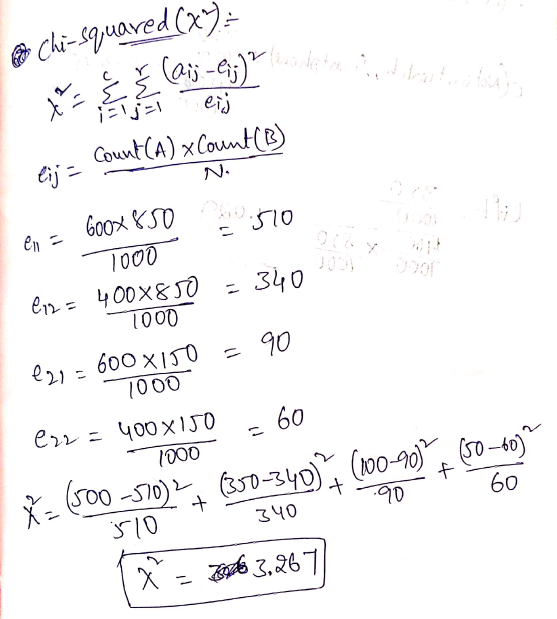 Chi-squared (χ²) :-
χ² = Σ_{i=1}^{c} Σ_{j=1}^{r} (aij - eij)² / eij
eij = Count(A) x Count(B) / N.
e11 = 600 x 850 / 1000 = 510
e12 = 400 x 850 / 1000 = 340
e21 = 600 x 150 / 1000 = 90
e22 = 400 x 150 / 1000 = 60
χ² = (500 - 510)² / 510 + (350 - 340)² / 340 + (100 - 90)² / 90 + (50 - 60)² / 60
χ² = 3.267